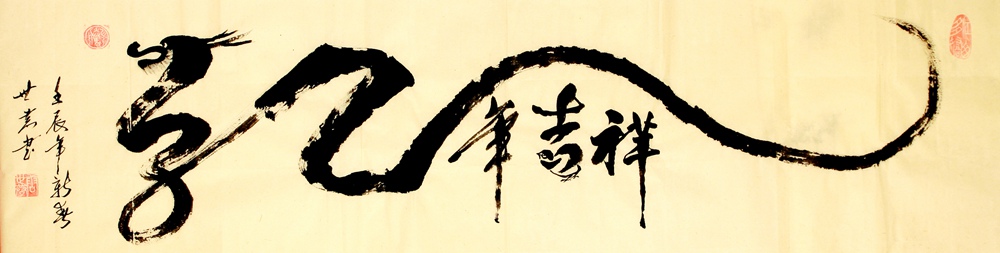 龍年吉祥
壬辰年新春
世書